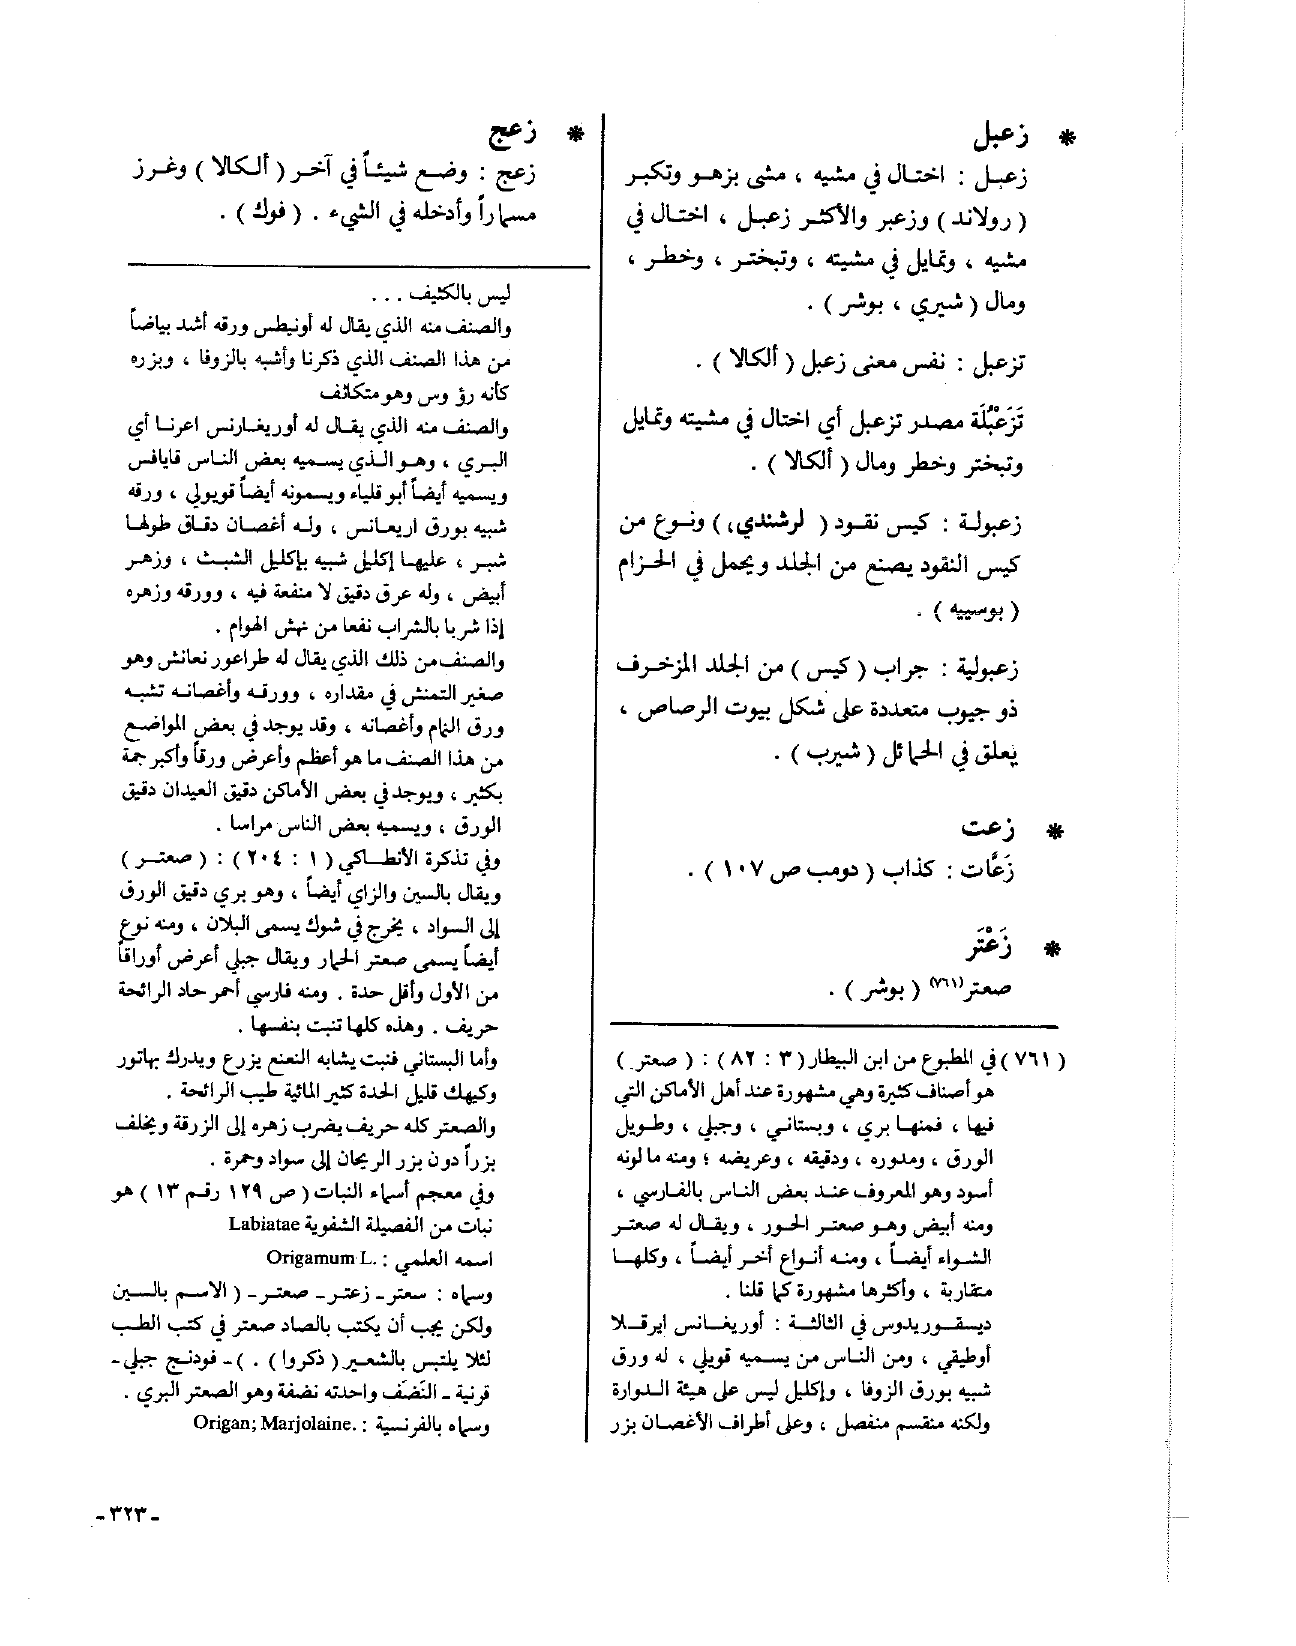 * زعبل
زعبل : اختال في مشيه ، مشى بزهو وتكبر
( رولاند ) وزعبر والأكثر زعبل ، اختال في
مشيه ، وتمايل في مشيته ، وتبختر ، وخطر ،
ومال ( شيري ، بوشر ) .
تزعبل : نفس معنى زعبل ( ألكالا ) .
تَزَعْبُلَة مصدر تزعبل أي اختال في مشيته وتمايل
وتبختر وخطر ومال ( ألكالا ) .
زعبولة : كيس نقود ( لرشندي، ) ونوع من
كيس النقود يصنع من الجلد ويحمل في الحزام
( بوسييه ) .
زعبولية : جراب ( كيس ) من الجلد المزخرف
ذو جيوب متعددة على شكل بيوت الرصاص ،
يعلق في الحمائل ( شيرب ) .
* زعت
زَعَّات : كذاب ( دومب ص ١٠٧ ) .
* زَعْتَر
صعتر(٧٦١) ( بوشر ) .
( ٧٦١ ) في المطبوع من ابن البيطار ( ٣ : ٨٢ ) : ( صعتر )
هو أصناف كثيرة وهي مشهورة عند أهل الأماكن التي
فيها ، فمنها بري ، وبستاني ، وجبلي ، وطويل
الورق ، ومدوره ، ودقيقه ، وعريضه ؛ ومنه ما لونه
أسود وهو المعروف عند بعض الناس بالفارسي ،
ومنه أبيض وهو صعتر الحور ، ويقال له صعتر
الشواء أيضاً ، ومنه أنواع أخر أيضاً ، وكلها
متقاربة ، وأكثرها مشهورة كما قلنا .
ديسقوريدوس في الثالثة : أوريغانس ايرقلا
أوطيقي ، ومن الناس من يسميه قويلي ، له ورق
شبيه بورق الزوفا ، وإكليل ليس على هيئة الدوارة
ولكنه منقسم منفصل ، وعلى أطراف الأغصان بزر
* زعج
زعج : وضع شيئاً في آخر ( ألكالا ) وغرز
مسماراً وأدخله في الشيء . ( فوك ) .
ليس بالكثيف ...
والصنف منه الذي يقال له أونيطس ورقه أشد بياضاً
من هذا الصنف الذي ذكرنا وأشبه بالزوفا ، وبزره
كأنه رؤوس وهو متكاثف
والصنف منه الذي يقال له أوريغارنس اعرنا أي
البري ، وهو الذي يسميه بعض الناس قايافس
ويسميه أيضاً أبو قلياء ويسمونه أيضاً قويولي ، ورقه
شبيه بورق اريعانس ، وله أغصان دقاق طولها
شبر ، عليها إكليل شبيه بإكليل الشبث ، وزهر
أبيض ، وله عرق دقيق لا منفعة فيه ، وورقه وزهره
إذا شربا بالشراب نفعا من نهش الهوام .
والصنف من ذلك الذي يقال له طراعور نعانش وهو
صغير التمنش في مقداره ، وورقه وأغصانه تشبه
ورق النمام وأغصانه ، وقد يوجد في بعض المواضع
من هذا الصنف ما هو أعظم وأعرض ورقاً وأكبر جمة
بكثير ، ويوجد في بعض الأماكن دقيق العيدان دقيق
الورق ، ويسميه بعض الناس مراسا .
وفي تذكرة الأنطاكي ( ١ : ٢٠٤ ) : ( صعتر )
ويقال بالسين والزاي أيضاً ، وهو بري دقيق الورق
إلى السواد ، يخرج في شوك يسمى البلان ، ومنه نوع
أيضاً يسمى صعتر الحمار ويقال جبلي أعرض أوراقاً
من الأول وأقل حدة . ومنه فارسي أحمر حاد الرائحة
حريف . وهذه كلها تنبت بنفسها .
وأما البستاني فنبت يشابه النعنع يزرع ويدرك بهاتور
وكيهك قليل الحدة كثير المائية طيب الرائحة .
والصعتر كله حريف يضرب زهره إلى الزرقة ويخلف
بزراً دون بزر الريحان إلى سواد وحمرة .
وفي معجم أسماء النبات ( ص ١٢٩ رقم ١٣ ) هو
نبات من الفصيلة الشفوية Labiatae
اسمه العلمي : Origamum L.
وسماه : سعتر- زعتر- صعتر- ( الاسم بالسين
ولكن يجب أن يكتب بالصاد صعتر في كتب الطب
لئلا يلتبس بالشعير ( ذكروا ) . )- فودنج جبلي-
قرنية - النَضَف واحدته نضفة وهو الصعتر البري .
وسماه بالفرنسية : Origan; Marjolaine.
-٣٢٣-